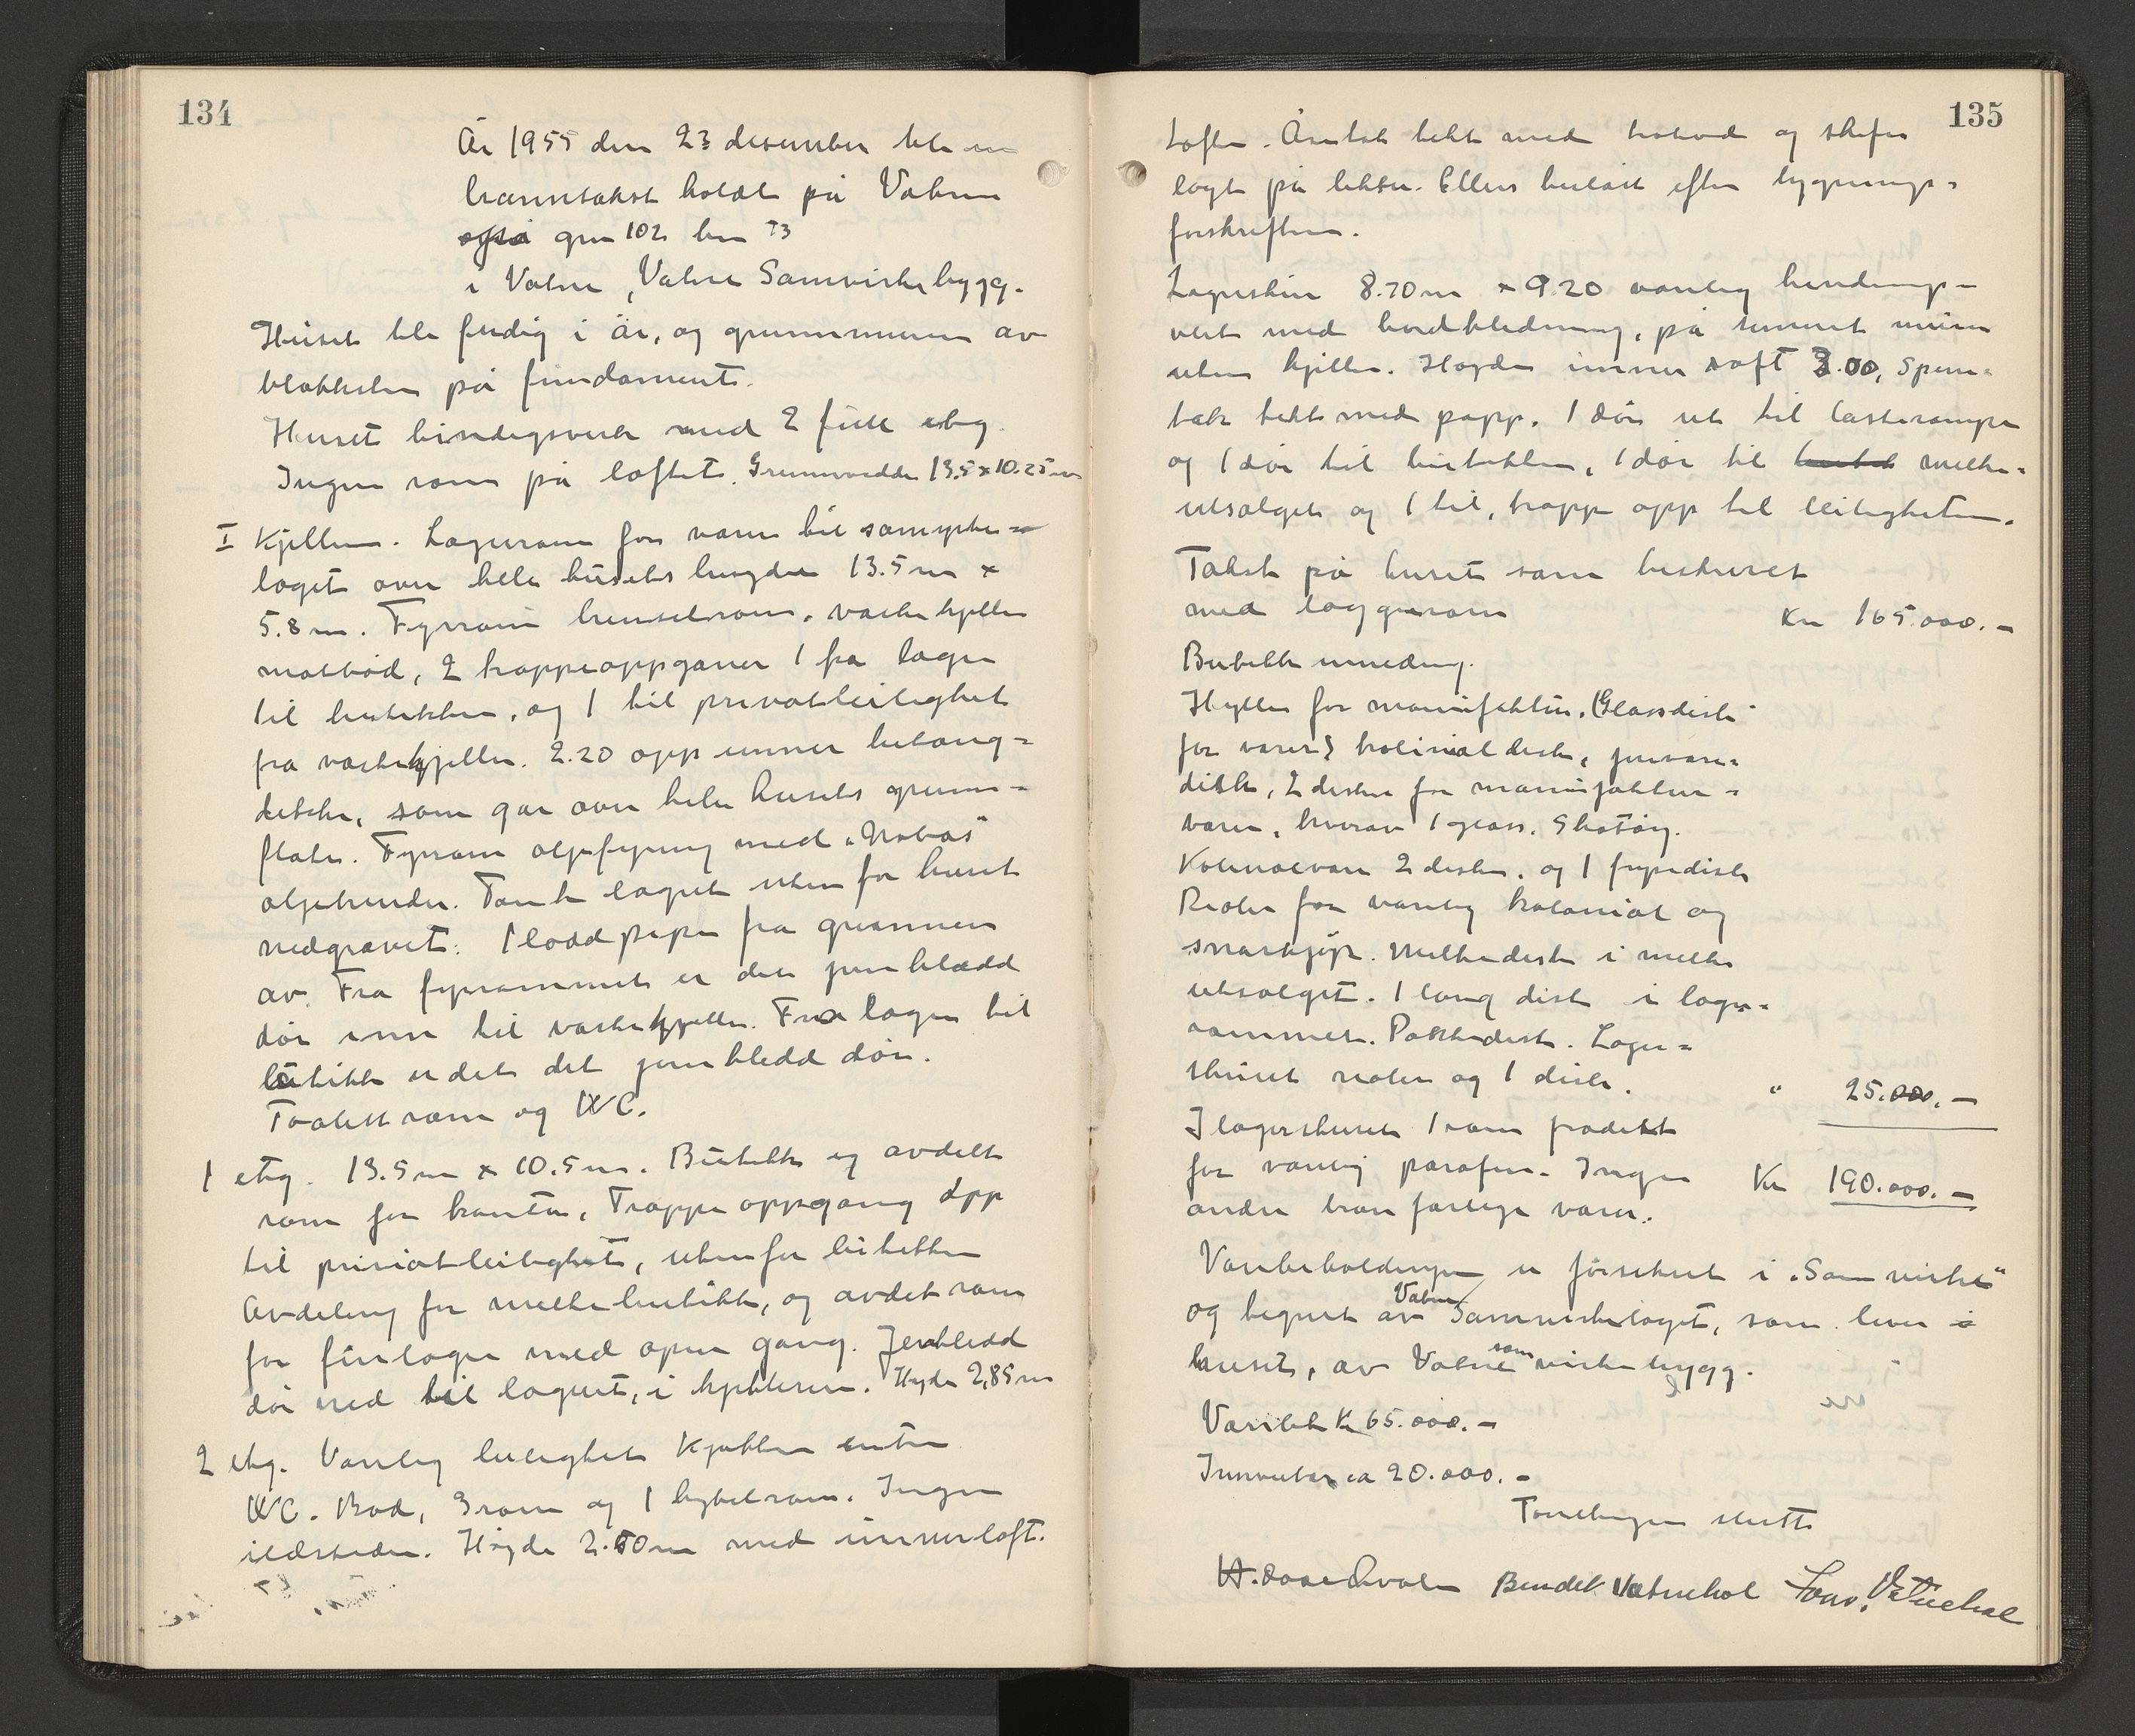 134
År 1955 den 23 desember ble en
branntakst holdt på Vatne
også gnr 102 bnr 73
i Vatne, Vatne Samvirkebygg.
Huset ble ferdig i år, og grunnmuren av
blokkstein på fundament.
Huset bindigsverk med 2 fulle etg.
Ingen rom på loftet. Grunnvidde 13.5 x 10.25 m
I Kjelleren. Lagerrom for varer til samyrke=
laget over hele husets lengde 13.5 m x
5.8 m. Fyrrom brenselrom, vaskekjeller
matbod, 2 trappeoppganer 1 fra lager
til butikken, og 1 til privatleilighet
fra vaskekjeller. 2.20 opp unner betong=
dekke, som går over hele husets grunn=
flate. Fyrrom oljefyring med „Nobas"
oljebrender. Tank lagret uten for huset
nedgravet. 1 lodd pipe fra grunnen
av. Fra fyrrommet er det jernkledd
dør inn til vaskekjeller. Fra lager til
butikk er det det jernkledd dør.
Toalettrom og WC.
1 etg. 13.5 m x 10.5 m. Butikk og avdelt
rom for kontor, Trappeoppgang opp
til privatleilighet, utenfor butikken
Avdeling for melkebutikk, og avdelt rom
for finlager med open gang. Jernkledd
dør ned til lageret, i kjelleren. Høyde 2,85 m
2 etg. Vanlig leilighet Kjøkken entre
WC. Bod, 3 rom og 1 hybelrom. Ingen
ildsteder. Høyde 2.50 m med unnerloft.
135
Loftet. Åsetak tekt med trobord og skifer
lagt på lekter. Ellers beslått efter bygnings=
forskriften.
Lagerskur 8.70 m x 9.20 vanlig bindings=
verk med bordkledning, på sement murer
uten kjeller. Høyden unner loft 3.00, Sperre=
tak tekt med papp. 1 dør ut til lasterampe
og 1 dør til butikken, 1 dør til butikk melke=
utsalget og 1 til, trapp opp til leiligheten.
Takst på huset som beskrevet
med laggerrom Kr 165.000.-
Butikk inneding.
Hyller for manufaktur, (Glassdisk
for varer) kolinial disk, jernvare=
disk, 2 disker for manufaktur=
varer, hvorav 1 glass. Skotøy.
Kolinialvarer 2 disker, og 1 frysedisk
Reoler for vanlig kolonial og
snarkjøp. Melkedisk i melke
utsalget. 1 lang disk i lager=
rommet. Pakkedisk. Lager=
skuret reoler og 1 disk. " 25.000.-
I lagerskuret 1 rom fradelt
for vanlig parafin. Ingen Kr 190.000.-
andre bran farlige varer.
Varebeholdningen er forsikret i „Samvirke"
og begnet av Vatne Samvirkelaget, som leier i
huset, av Vatne samvirkebygg.
Varelik Kr 65.000.-
Innventar ca 20.000.-
Forretningen slutt
Bendik Vatnehol Vatnehol